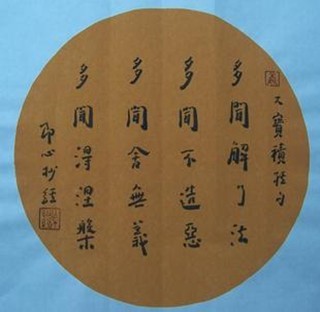 大寶積經句
多聞解了法
多聞不造惡
多聞舍無義
多聞得涅槃
印心抄經